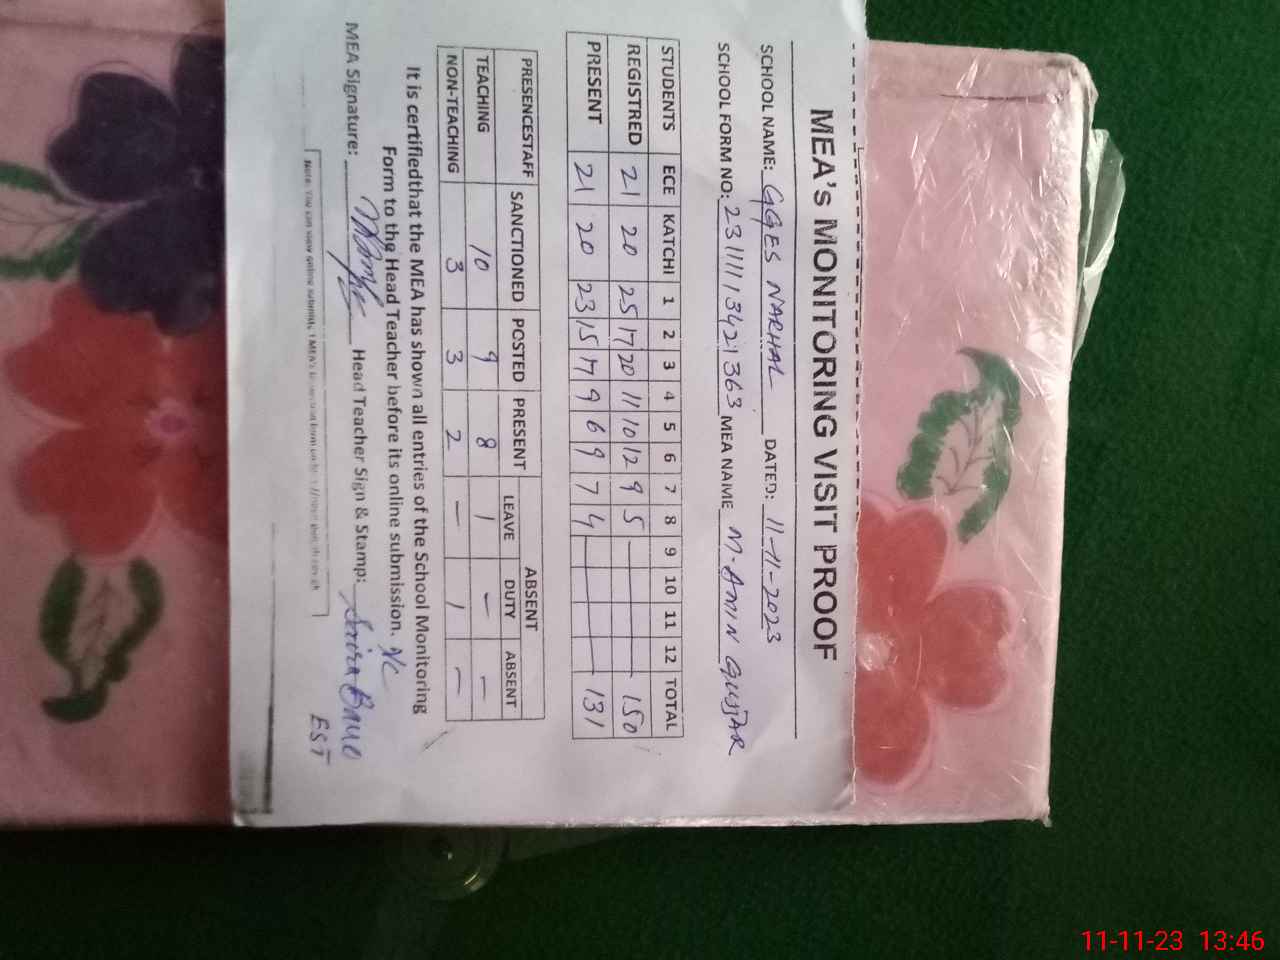 MEA's MONITORING VISIT PROOF
SCHOOL NAME: GGES NARHAL DATED: 11-11-2023
SCHOOL FORM NO: 23111113421363 MEA NAME M. AMIN GUJJAR
STUDENTS ECE KATCHI 1 2 3 4 5 6 7 8 9 10 11 12 TOTAL
REGISTRED 21 20 25 17 20 11 10 12 9 5 150
PRESENT 21 20 23 15 17 9 6 9 7 4 131
PRESENCESTAFF SANCTIONED POSTED PRESENT ABSENT
LEAVE DUTY ABSENT
TEACHING 10 9 8 1 - -
NON-TEACHING 3 3 2 - 1 -
It is certifiedthat the MEA has shown all entries of the School Monitoring
Form to the Head Teacher before its online submission. I/C
MEA Signature: Head Teacher Sign & Stamp: Saira Bano
EST
Note: You can view online
11-11-23 13:46